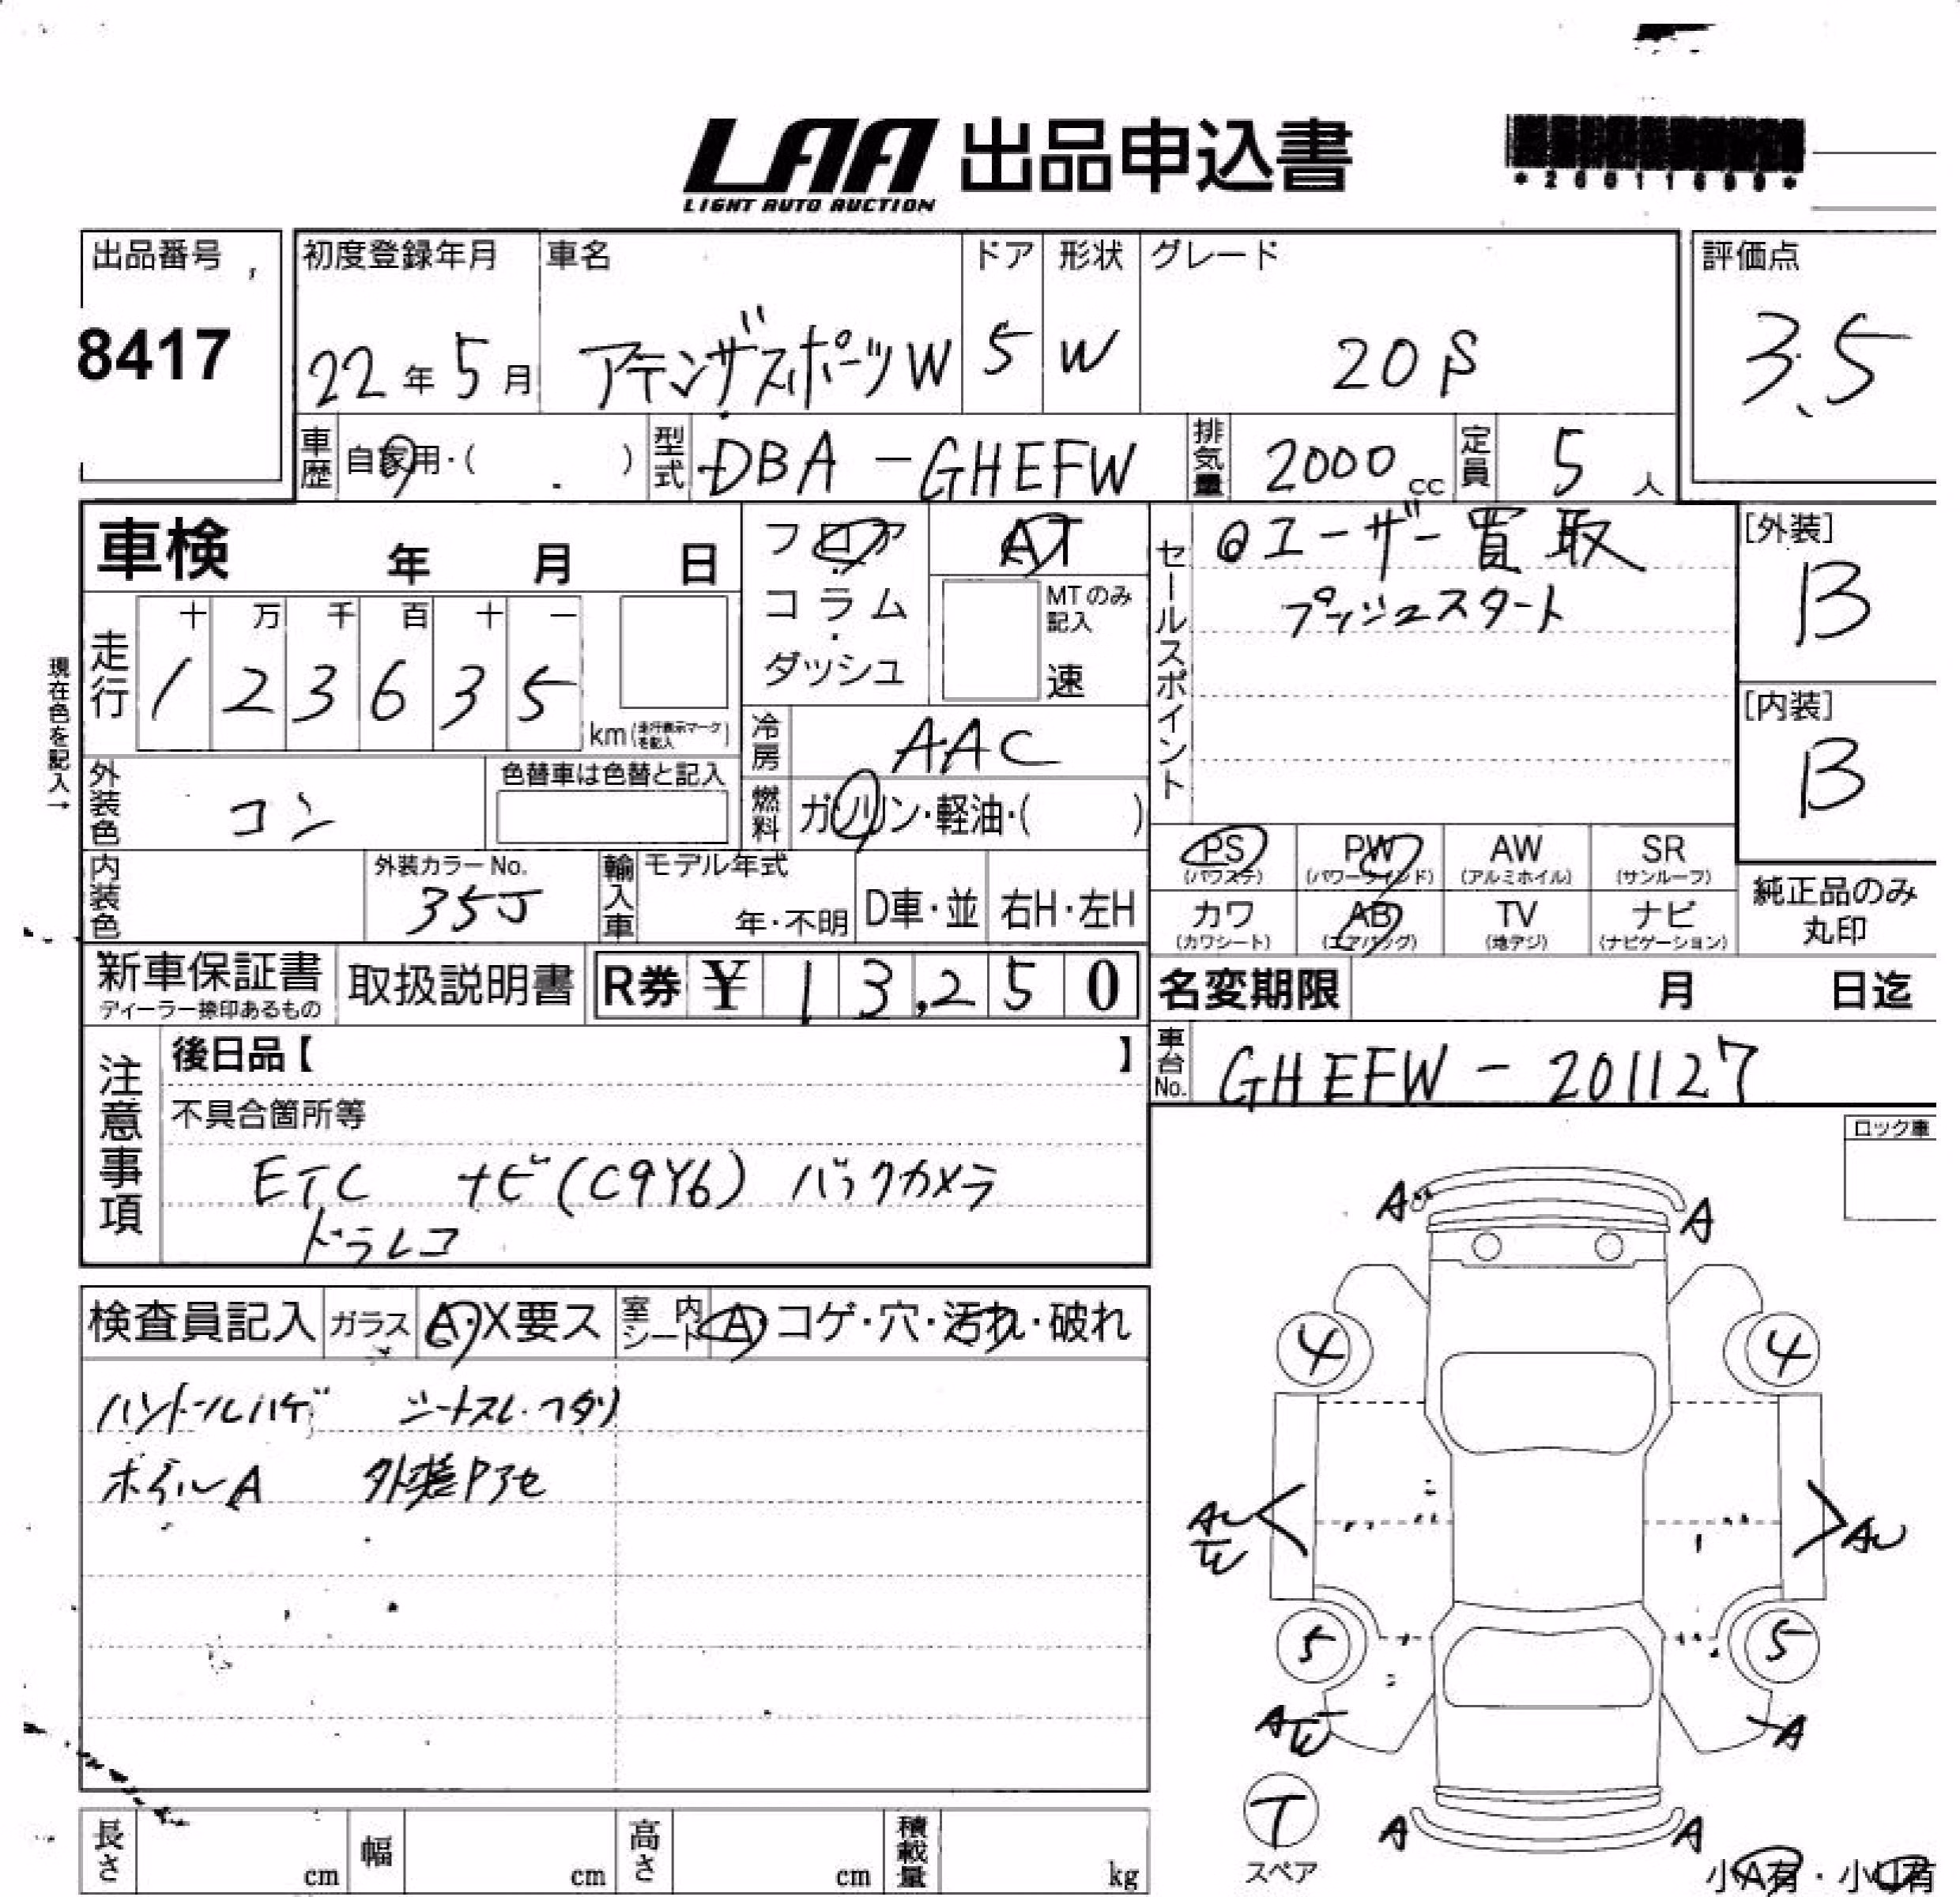 LAA 出品申込書
LIGHT AUTO AUCTION
出品番号
8417
初度登録年月 車名 ドア 形状 グレード 評価点
22年 5月 アテンザスポーツW 5 W 20S 3.5
車歴 自家用・( ) 型式 DBA-GHEFW 排気量 2000cc 定員 5人
車検 年 月 日
フロア
コラム
・
ダッシュ
AT
MTのみ
記入
速
セールスポイント
◎ユーザー買取
プッシュスタート
[外装]
B
[内装]
B
現在色を記入→
走行 十 万 千 百 十 一
1 2 3 6 3 5 km(走行表示マークを記入)
冷房 AAC
外装色 コン 色替車は色替と記入
燃料 ガソリン・軽油・( )
PS PW AW SR
(パワステ) (パワーウインド) (アルミホイル) (サンルーフ)
カワ AB TV ナビ
(カワシート) (エアバッグ) (地デジ) (ナビゲーション)
純正品のみ
丸印
内装色 外装カラーNo. 35J
輸入車 モデル年式 年・不明 D車・並 右H・左H
新車保証書
ディーラー捺印あるもの
取扱説明書 R券 ¥ 13,250
名変期限 月 日迄
車台No. GHEFW-201127
注意事項
後日品【 】
不具合箇所等
ETC ナビ(C9Y6) バックカメラ
ドラレコ
ロック車
検査員記入 ガラス A・X要ス 室内シート A・コゲ・穴・汚れ・破れ
ハンドルハゲ シートスレ・フタリ
ホイルA 外装Pアセ
A A
4 4
AU
AU
5 5
A
A
T
スペア
A A
小A有・小U有
長さ cm 幅 cm 高さ cm 積載量 kg